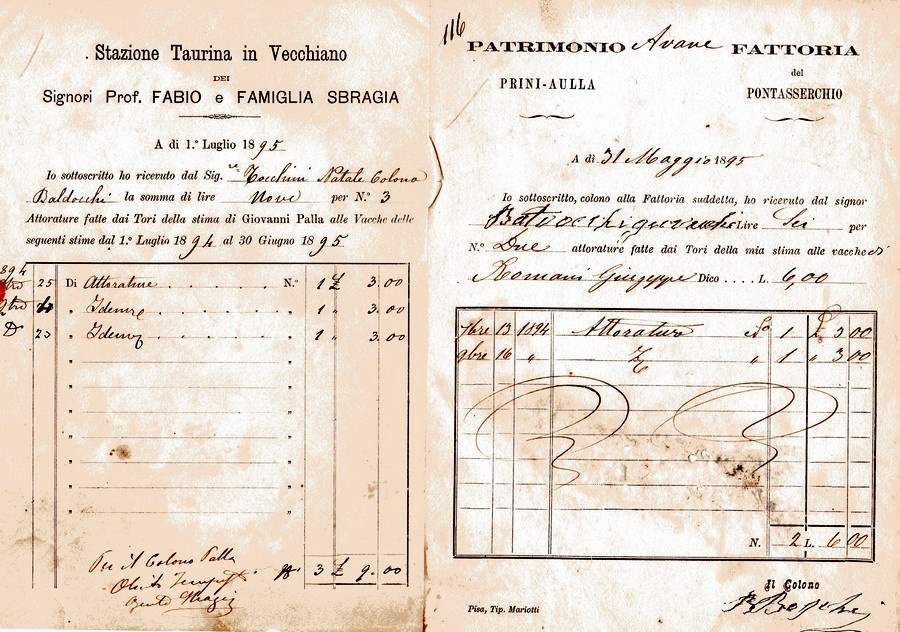 Stazione Taurina in Vecchiano
DEI
Signori Prof. FABIO e FAMIGLIA SBRAGIA
A di 1.° Luglio 1895
Io sottoscritto ho ricevuto dal Sig.re Tocchini Natale Colono
Baldocchi la somma di lire Nove per N.° 3
Attorature fatte dai Tori della stima di Giovanni Palla alle Vacche delle
seguenti stime dal 1.° Luglio 1894 al 30 Giugno 1895.
894
25 Di Attorature N.° 1 £ 3.00
" Idem " 1 " 3.00
D° 23 " Idem " 1 " 3.00
Per il Colono Palla
N° 3 £ 9.00
116
PATRIMONIO Avane FATTORIA
PRINI-AULLA
del
PONTASSERCHIO
A di 31 Maggio 1895
Io sottoscritto, colono alla Fattoria suddetta, ho ricevuto dal signor
Lire Sei per
N.° Due attorature fatte dai Tori della mia stima alle vacche di
Romani Giuseppe Dico .... L. 6,00
7bre 13 1894 Attorature N° 1 £ 3 00
9bre 16 " " 1 " 3 00
N. 2 L. 6 00
Il Colono
Pisa, Tip. Mariotti